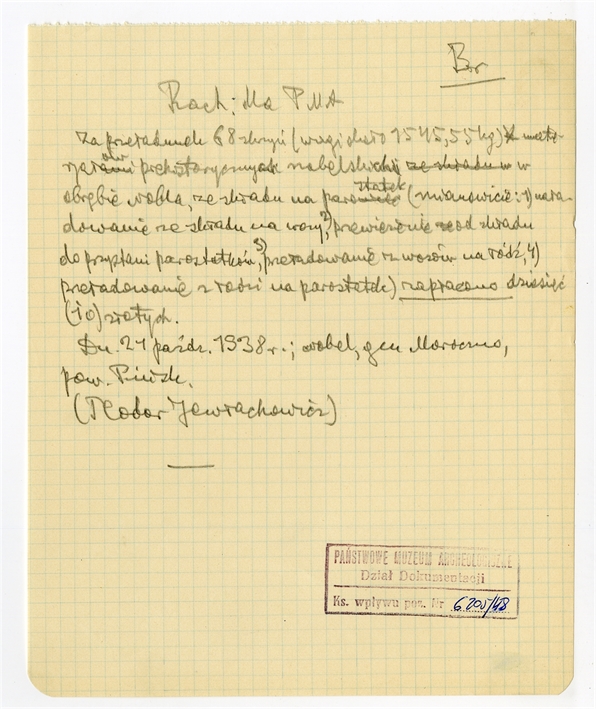 Br
Rach: dla PMA
Za przeładunek 68 skrzyń (wagi około 1545,55 kg) z mate-
rjałami ów prehistorycznych nobelskich ze składu w w
obrębie Nobla, ze składu na parowiec statek (mianowicie: 1) nała-
dowanie ze składu na wozy, 2) przewiezienie od składu
do przystani parostatków, 3) przeładowanie z wozów na łódź, 4)
przeładowanie z łodzi na parostatek) zapłacono dziesięć
(10) złotych.
Dn. 21 paźdz. 1938 r.; Nobel, gm Moroczno,
pow. Pińsk.
(Teodor Jewłachowicz)
PAŃSTWOWE MUZEUM ARCHEOLOGICZNE
Dział Dokumentacji
Ks. wpływu poz. Nr 6200/48